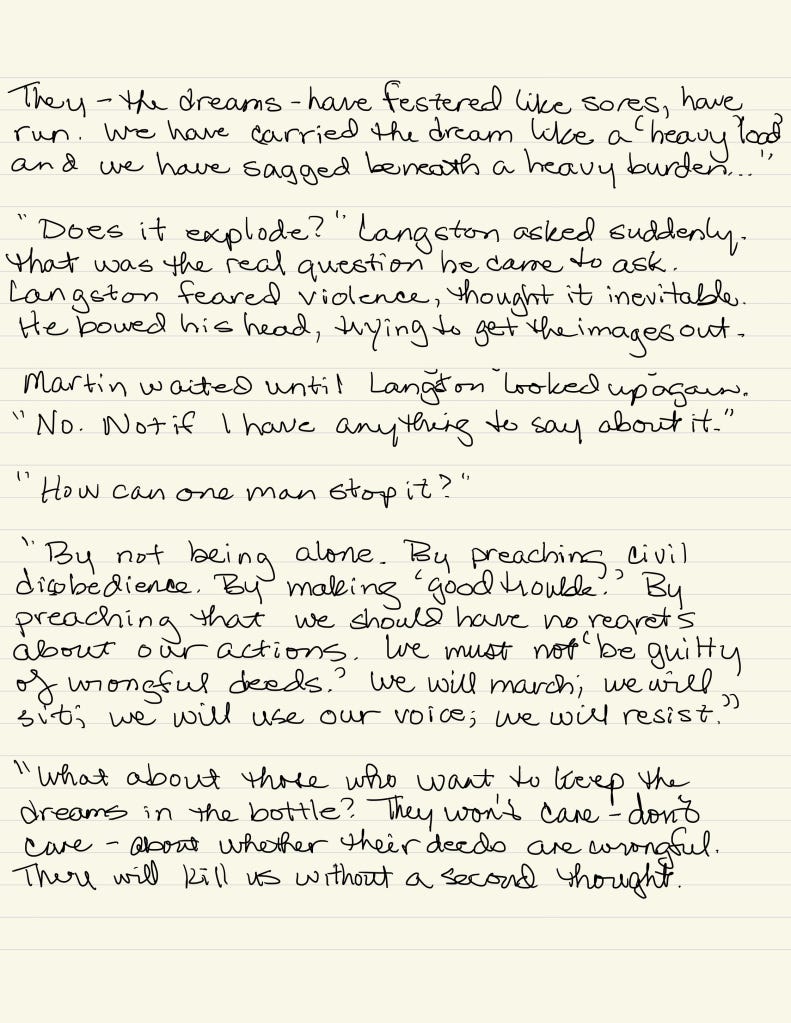 They – the dreams – have festered like sores, have
run. We have carried the dream like a 'heavy load'
and we have sagged beneath a heavy burden..."
"Does it explode?" Langston asked suddenly.
That was the real question he came to ask.
Langston feared violence, thought it inevitable.
He bowed his head, trying to get the images out.
Martin waited until Langston looked up again.
"No. Not if I have anything to say about it."
"How can one man stop it?"
"By not being alone. By preaching civil
disobedience. By making 'good trouble.' By
preaching that we should have no regrets
about our actions. We must not 'be guilty
of wrongful deeds.' We will march; we will
sit; we will use our voice; we will resist."
"What about those who want to keep the
dreams in the bottle? They won't care – don't
care – about whether their deeds are wrongful.
There will kill us without a second thought.